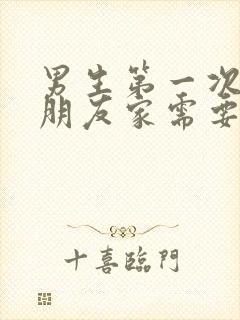 男生第一次
朋友家需要
十喜臨門